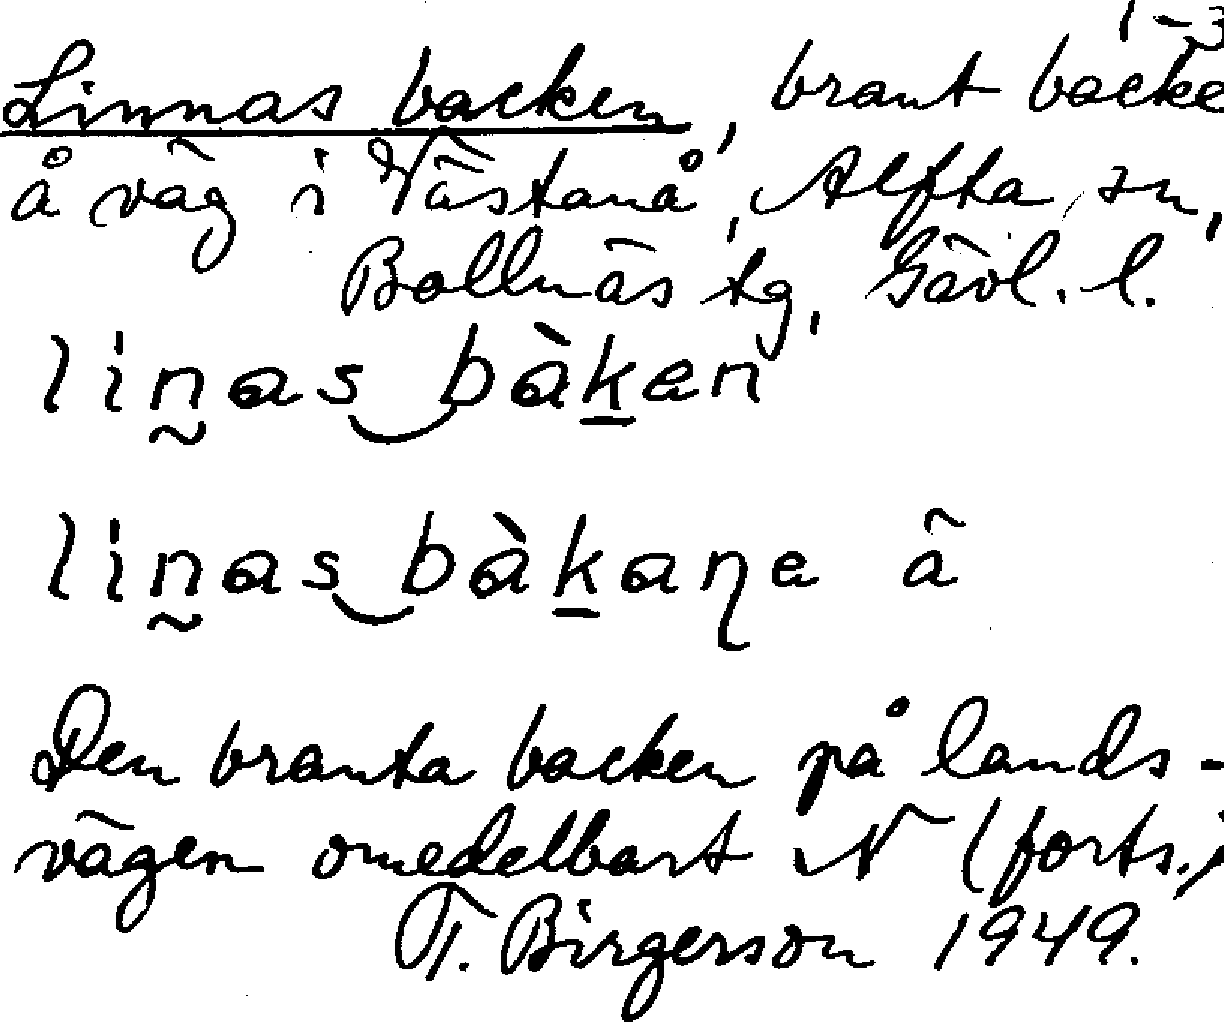 1-3
Linnas backen, brant backe
å väg i Västanå, Alfta sn,
Bollnäs tg, Gävl. l.
lin̰as‿bàk̲en
lin̰as‿bàk̲aɳe ã
Den branta backen på lands-
vägen omedelbart N (forts.)
T. Birgerson 1949.